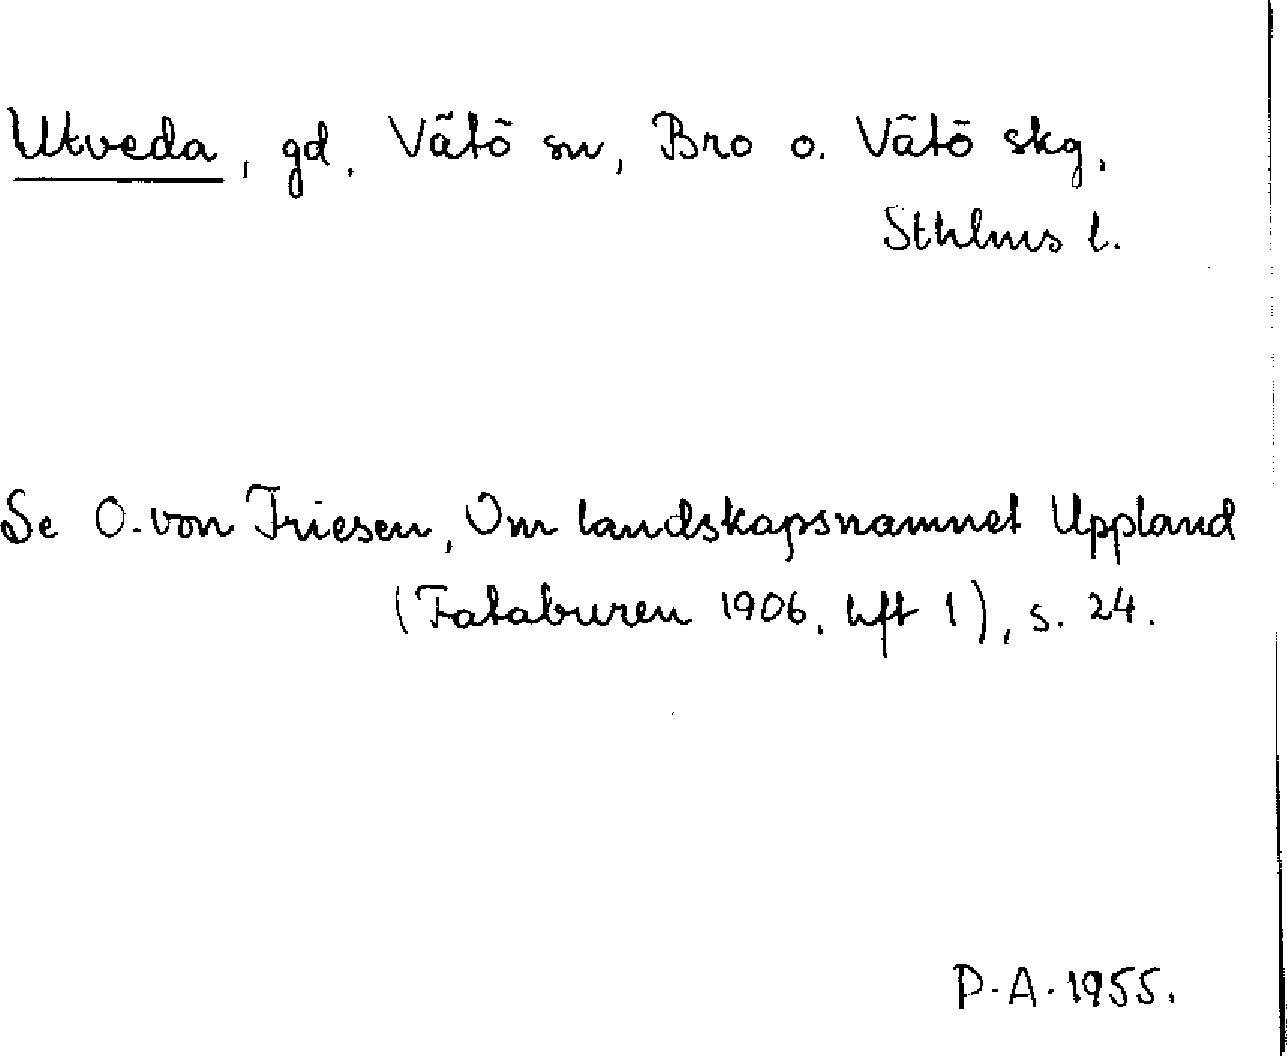 Utveda, gd, Vätö sn, Bro o. Vätö skg.
Sthlms l.
Se O. von Friesen, Om landskapsnamnet Uppland
(Fataburen 1906, hft 1), s. 24.
P.A. 1955.